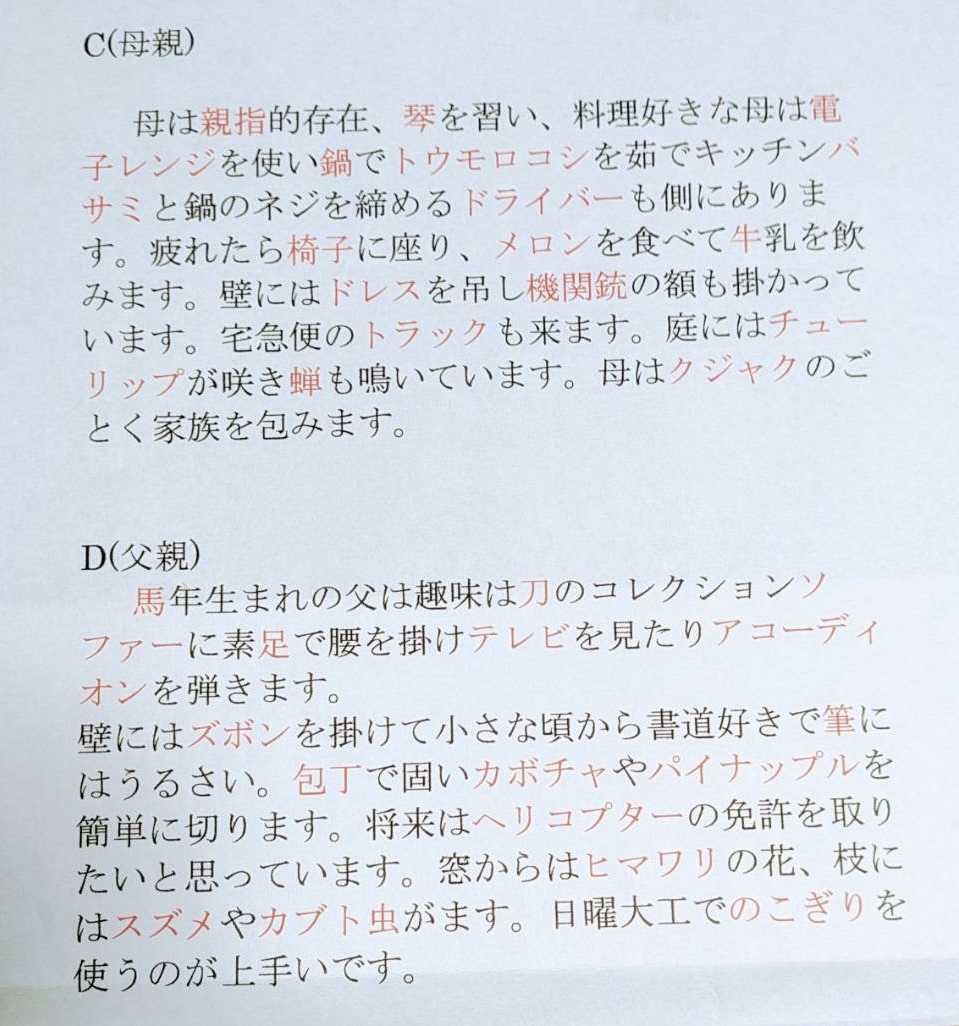 C(母親)
母は親指的存在、琴を習い、料理好きな母は電
子レンジを使い鍋でトウモロコシを茹でキッチンバ
サミと鍋のネジを締めるドライバーも側にありま
す。疲れたら椅子に座り、メロンを食べて牛乳を飲
みます。壁にはドレスを吊し機関銃の額も掛かって
います。宅急便のトラックも来ます。庭にはチュー
リップが咲き蝉も鳴いています。母はクジャクのご
とく家族を包みます。
D(父親)
馬年生まれの父は趣味は刀のコレクションソ
ファーに素足で腰を掛けテレビを見たりアコーディ
オンを弾きます。
壁にはズボンを掛けて小さな頃から書道好きで筆に
はうるさい。包丁で固いカボチャやパイナップルを
簡単に切ります。将来はヘリコプターの免許を取り
たいと思っています。窓からはヒマワリの花、枝に
はスズメやカブト虫がます。日曜大工でのこぎりを
使うのが上手いです。